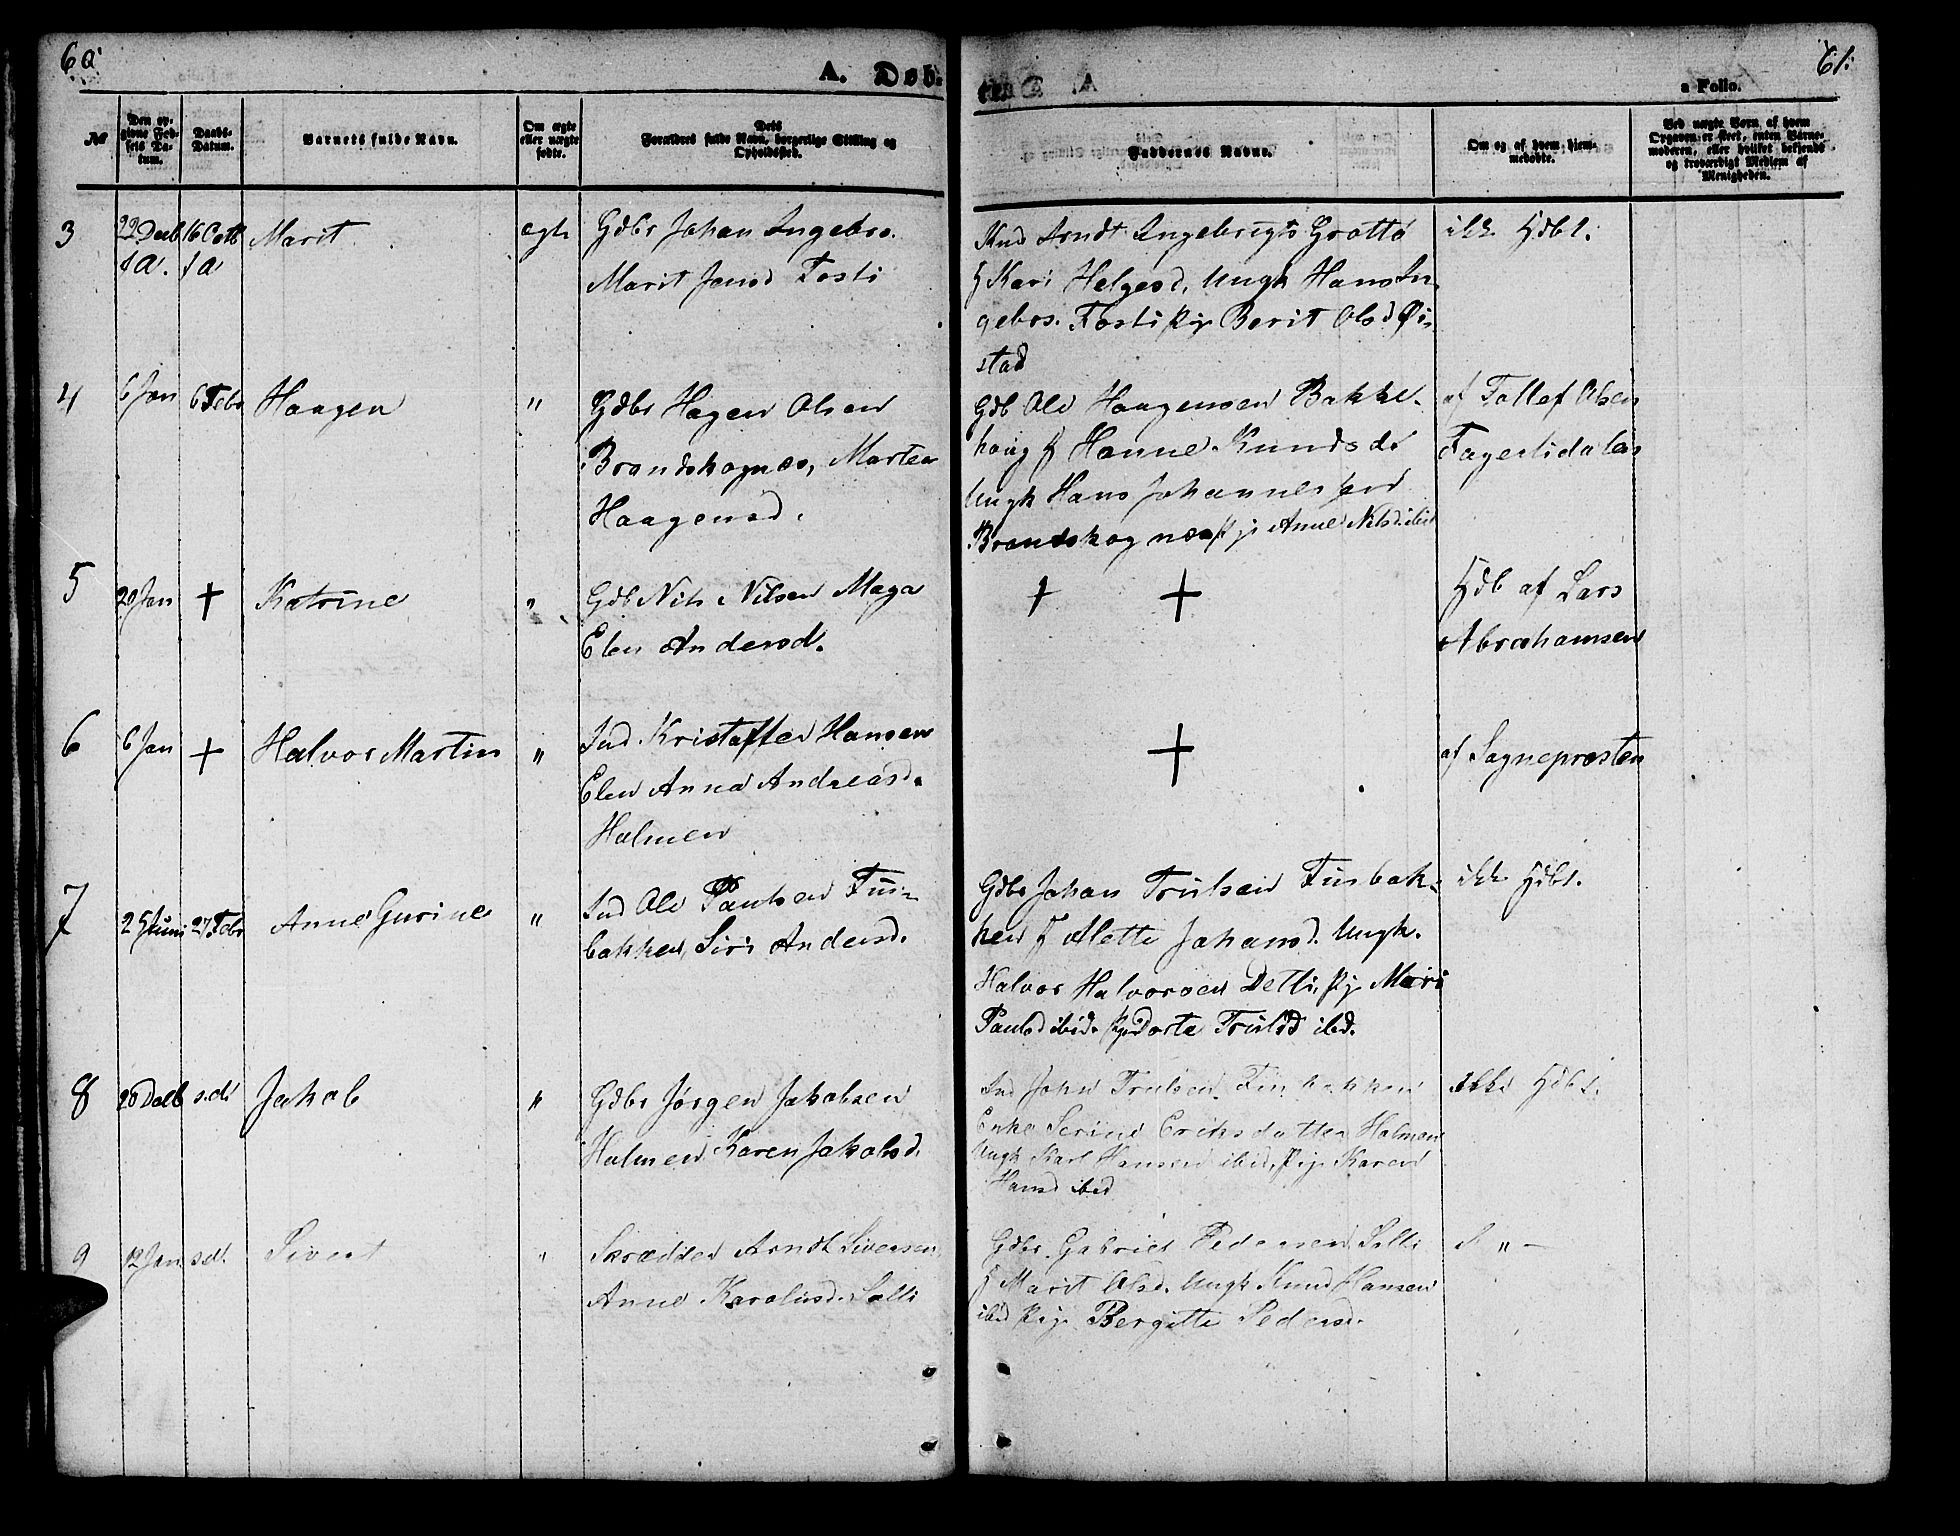 60
A. Døb-
№
Den op-
givne Fød-
sels Da-
tum.
Daabs-
Datum.
Barnets fulde Navn.
Om ægte
eller uægte
fødte.
Dets
Forældres fulde Navn, borgerlige Stilling og
Opholdssted.
3
22 Decb
f A.
16 Octb
f A
Marit
egte
Gdbr Johan Ingebr.
Marit Jensd Fosli
4
6 Jan
6 Febr
Haagen
"
Gdbr Hagen Olsen
Brandskognæs, Marten
Haagensd.
5
20 Jan
+
Katrine
"
Gdb Nils Nilsen Maga
Elen Andersd.
6
6 Jan
+
Halvor Martin
"
Ind Kristoffer Hansen
Elen Anna Andreasd.
Holmen
7
25 Juni
27 Febr
Anne Gurine
"
Ind Ole Paulsen Fin-
bakken, Siri Andersd.
8
20 Decb
s. d.
Jakob
"
Gdbr Jørgen Jakobsen
Holmen, Karen Jakobsd.
9
12 Jan
s. d.
Sivert
"
Skrædder Arndt Siversen
Anne Karolusd. Solli
61.
a Folio.
Faddernes Navne.
Om og af hvem hjem-
medøbte.
Ved uægte Børn af hvem
Opgaven er skeet, enten Barne-
moderen, eller hvilket bekjendt
og troværdigt Medlem af
Menigheden.
Arndt Ingebrigts Grøttø
Kari Helgesd, Ungk Hans In-
gebrs. Fosli Pig Berit Olsd Øi-
stad
ikke Hdbt.
Gdb Ole Haagensen Bakke-
houg Hanne Knudsd.
Ungk Hans Johannessen
Brandskognæs Pig Anne Nilsd ibid
af Tollef Olsen
Fagerlidalen
+ +
Hdb af Lars
Abrahamsen
+
af Sognepresten
Gdbr Johan Trulsen Finbak-
ken Mette Johansd. Ungk.
Halvor Halvorsen Detli, Pig Mari
Paulsd ibid. Pig Dorte Trulsd ibd.
ikke Hdbt.
Ind John Trulsen Finbakken
Enke Serine Eriksdatter Holmen
Ungk Karl Hansen ibid, Pig Karen
Hansd ibid
ikke Hdbt.
Gdbr. Gabriel Pedersen Solli
Marit Olsd. Ungk Knud Hansen
ibid Pig Bergitte Pedersd.
" —